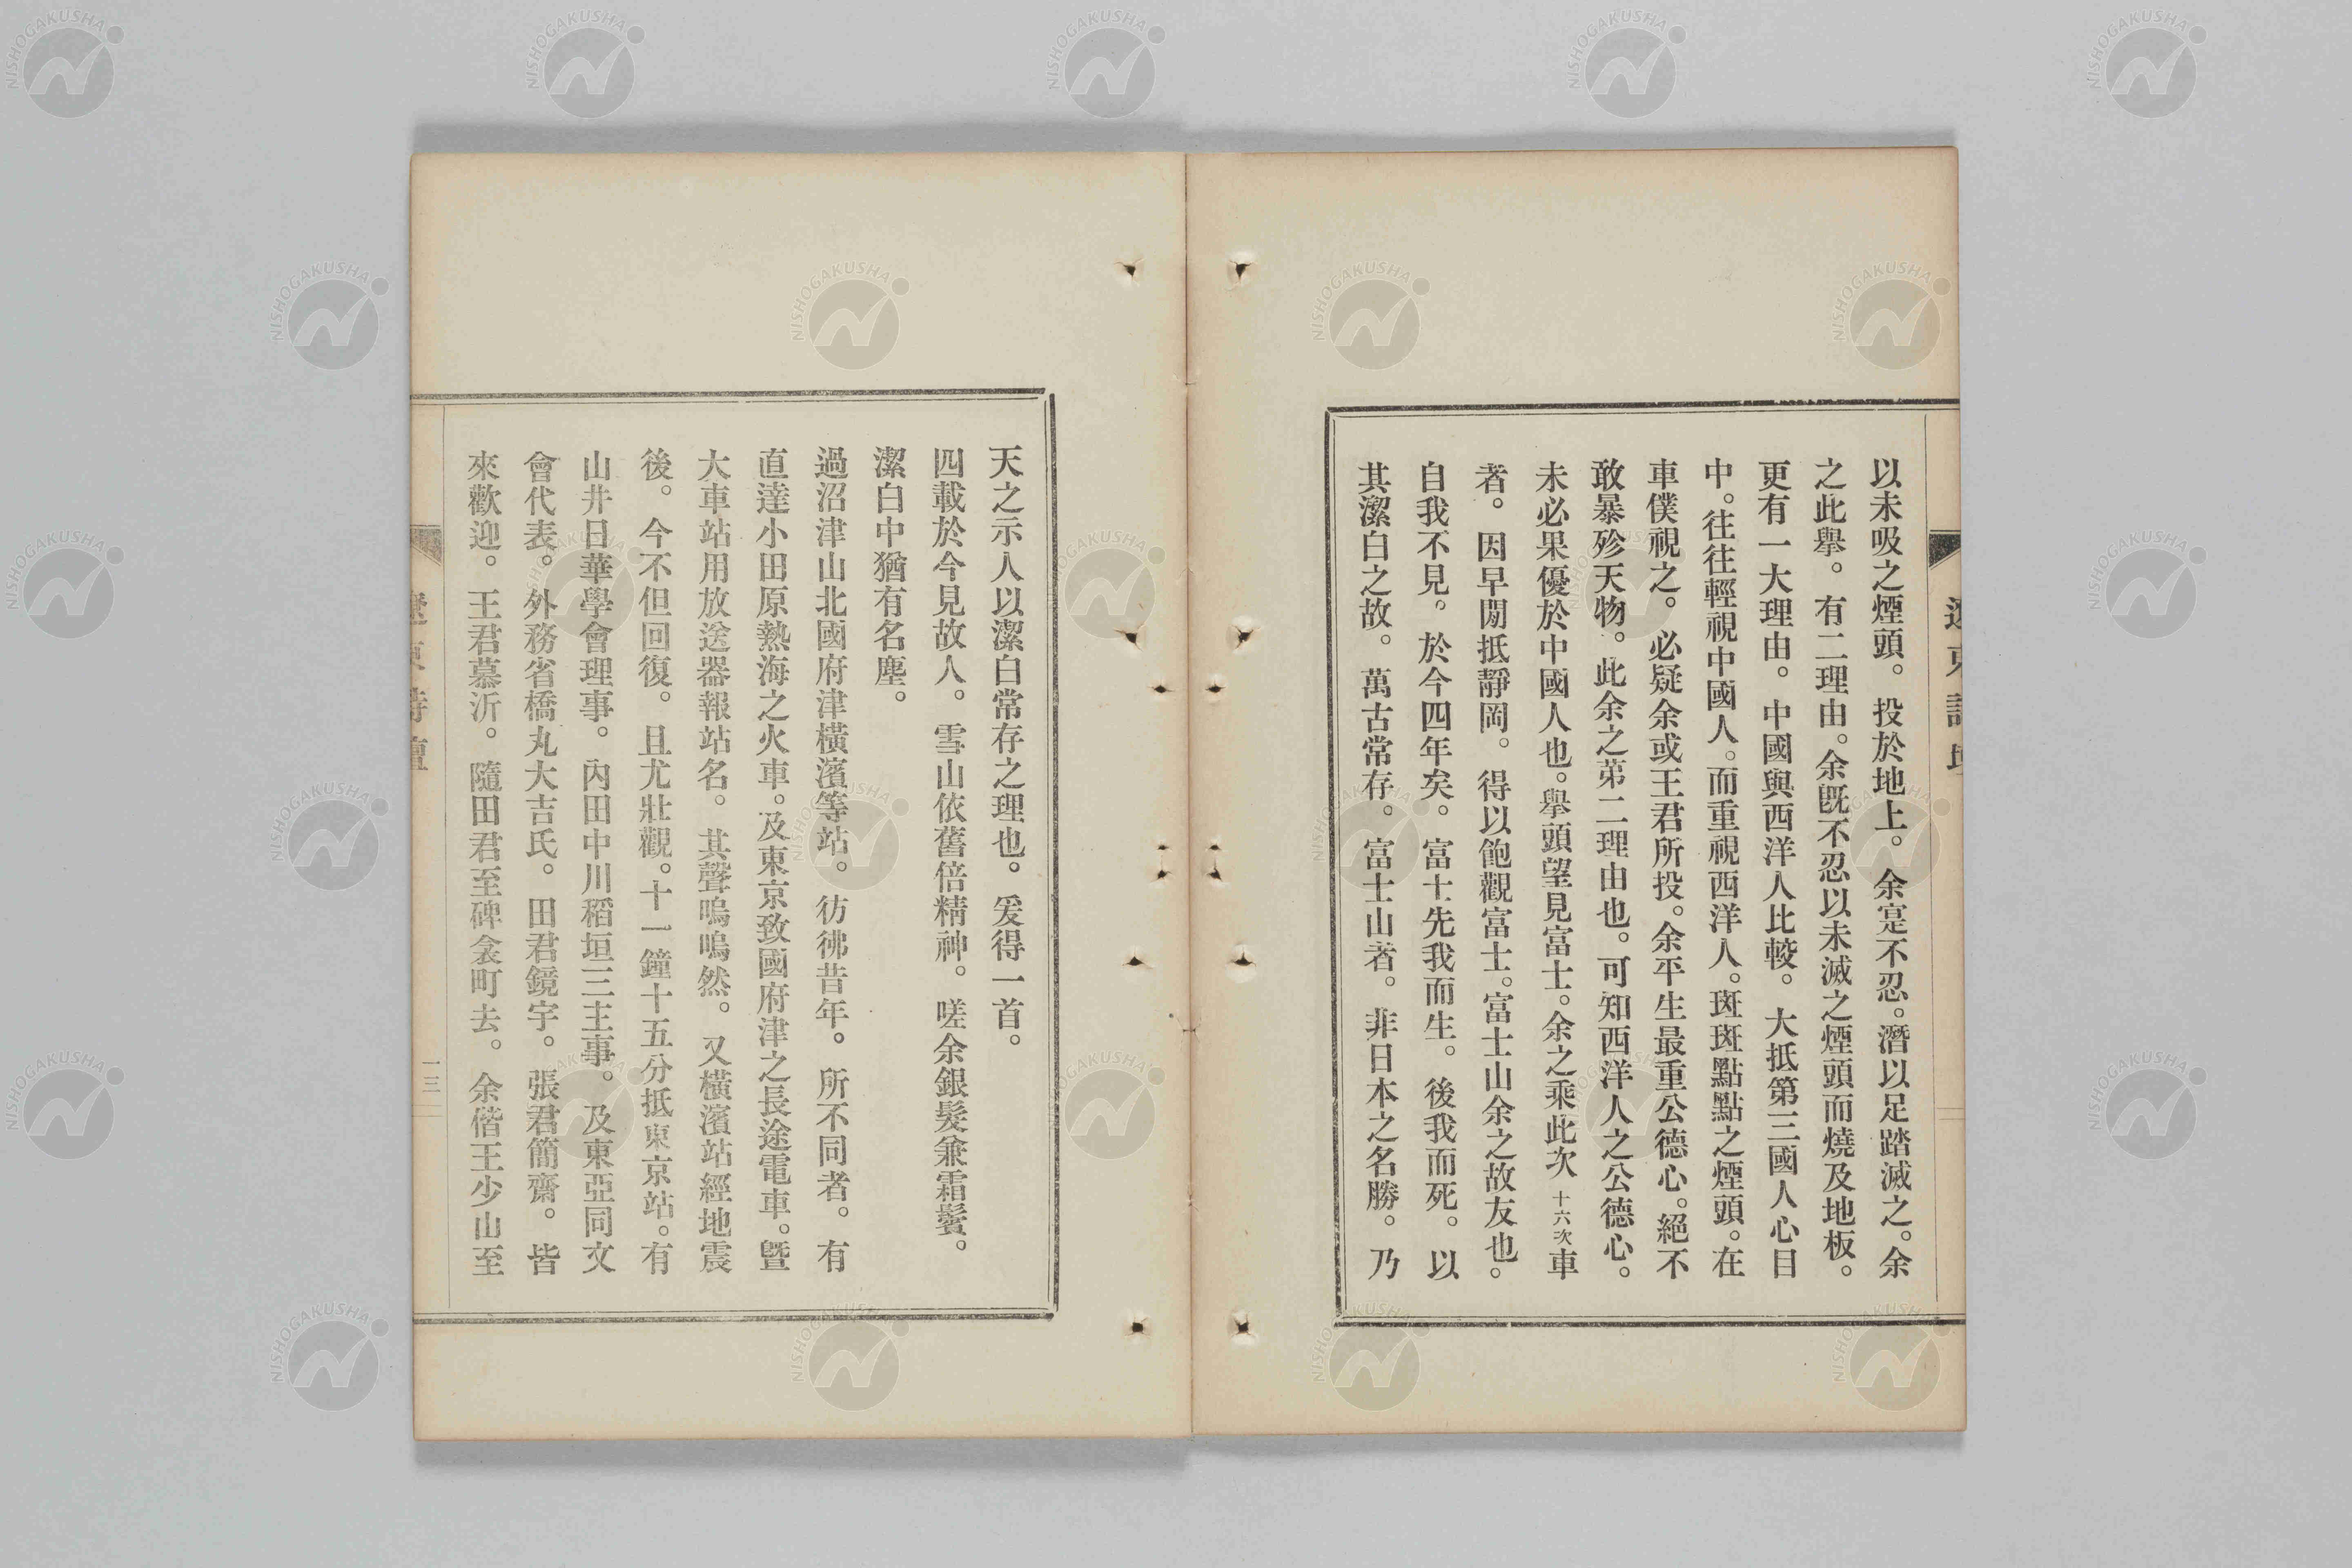 以未吸之煙頭。投於地上。余寔不忍。潛以足踏滅之。余
之此擧。有二理由。余旣不忍以未滅之煙頭而燒及地板。
更有一大理由。中國與西洋人比較。大抵第三國人心目
中。往往輕視中國人。而重視西洋人。斑斑點點之煙頭。在
車僕視之。必疑余或王君所投。余平生最重公德心。絕不
敢暴殄天物。此余之第二理由也。可知西洋人之公德心。
未必果優於中國人也。擧頭望見富士。余之乘此次十六次車
者。因早閱抵靜岡。得以飽觀富士。富士山余之故友也。
自我不見。於今四年矣。富士先我而生。後我而死。以
其潔白之故。萬古常存。富士山者。非日本之名勝。乃
天之示人以潔白常存之理也。爰得一首。
四載於今見故人。雪山依舊倍精神。嗟余銀髮兼霜鬢。
潔白中猶有名塵。
過沼津山北國府津橫濱等站。彷彿昔年。所不同者。有
直達小田原熱海之火車。及東京致國府津之長途電車。曁
大車站用放送器報站名。其聲嗚嗚然。又橫濱站經地震
後。今不但回復。且尤壯觀。十一鐘十五分抵東京站。有
山井日華學會理事。內田中川稻垣三主事。及東亞同文
會代表。外務省橋丸大吉氏。田君鏡宇。張君簡齋。皆
來歡迎。王君慕沂。隨田君至碑衾町去。余偕王少山至
一三
NISHOGAKUSHA